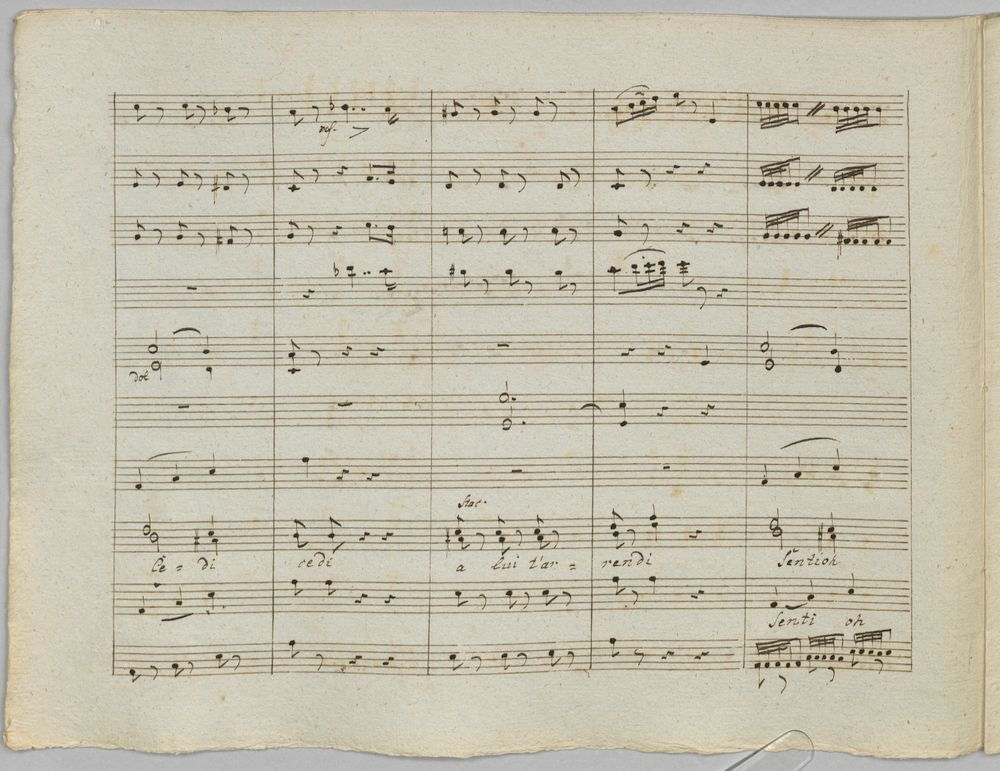 dol
Stac.
Ce = di cedi a lui t'ar = rendi Senti oh
Senti oh